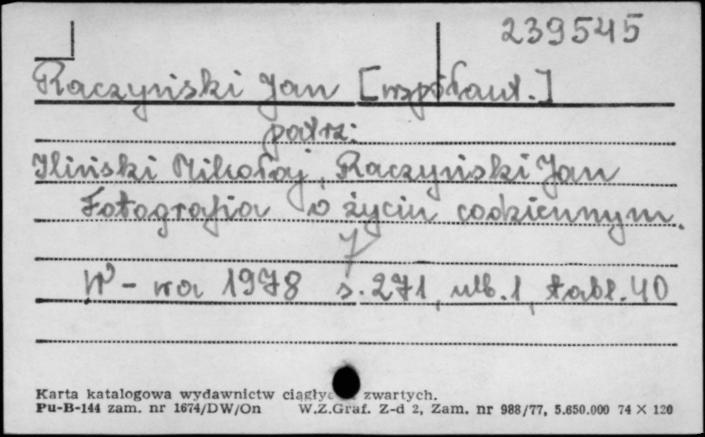 239545
Raczyński Jan [współaut.]
patrz:
Iliński Mikołaj, Raczyński Jan
Fotografia w życiu codziennym.
W-wa 1978 s. 271, ulb. 1, tabl. 40
Karta katalogowa wydawnictw zwartych.
Pu-B-144 zam. nr 1674/DW/On W.Z.Graf. Z-d 2, Zam. nr 988/77, 5.650.000 74 X 120